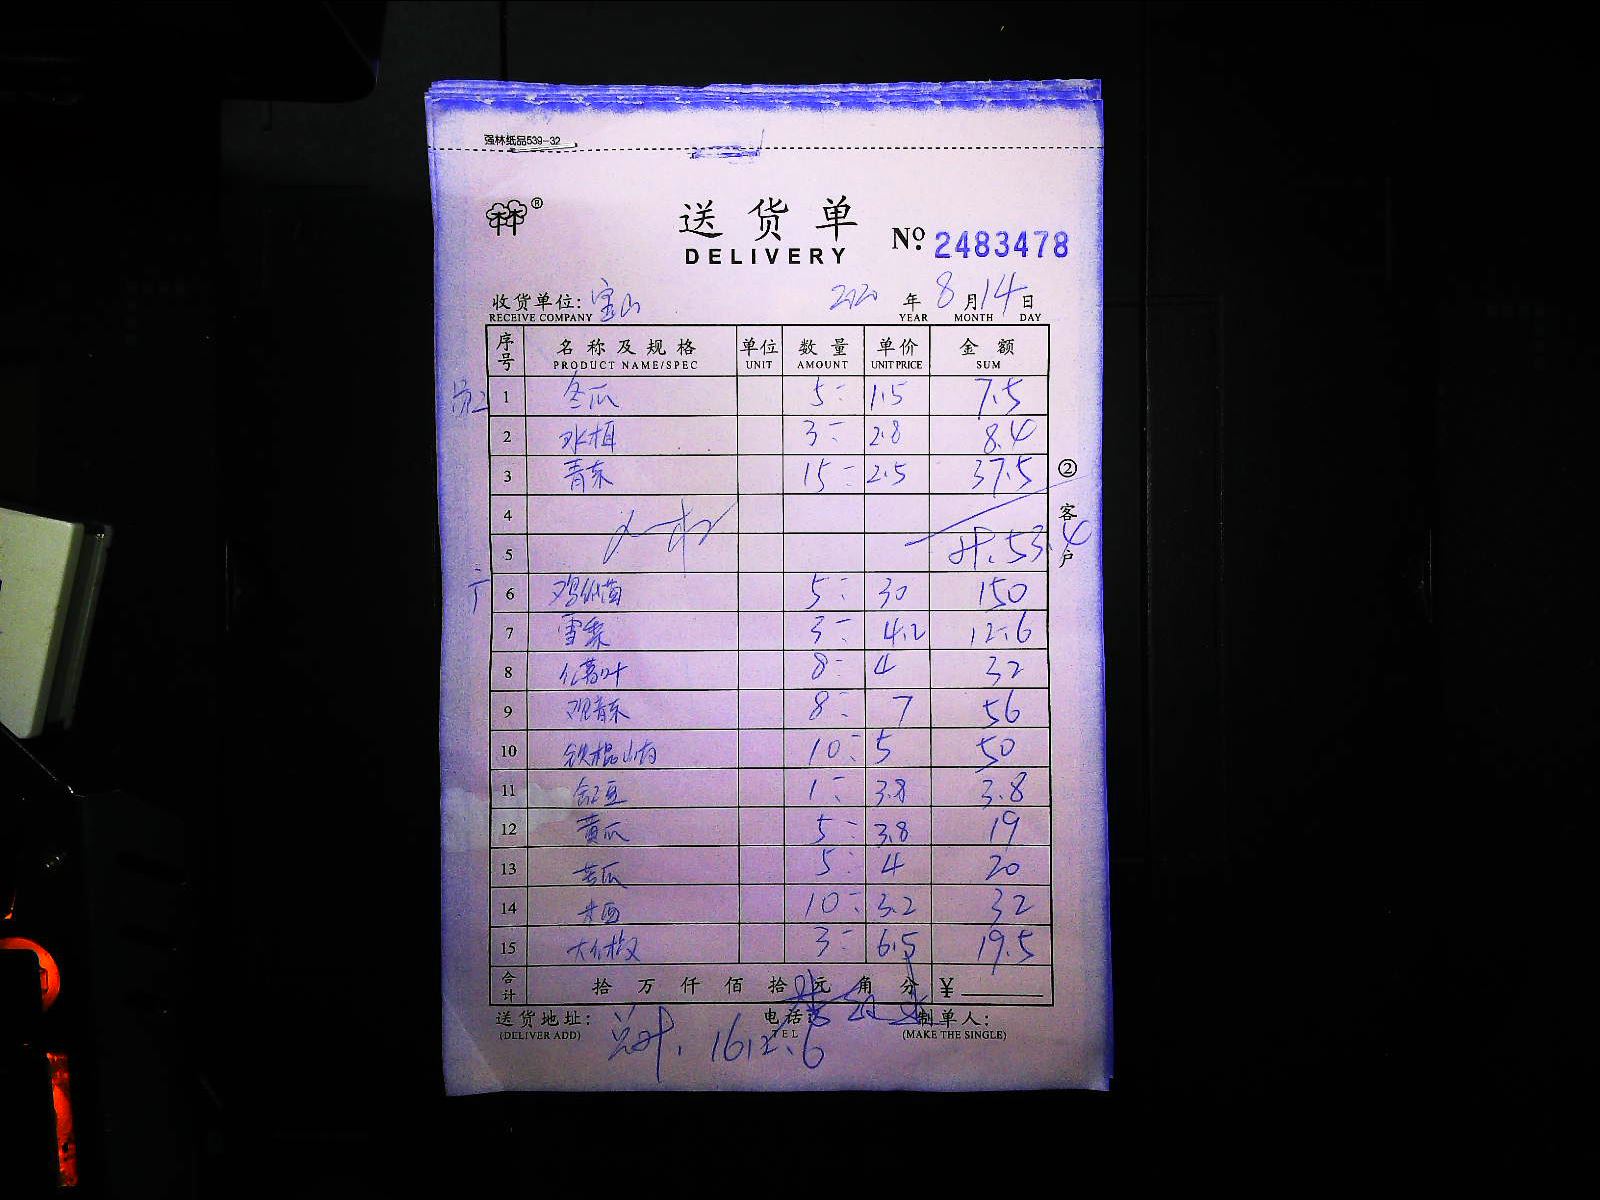 强林纸品539-32
®
送货单
DELIVERY
№ 2483478
收货单位: 宝山 2020 年 8 月 14 日
RECEIVE COMPANY YEAR MONTH DAY
序号 名称及规格 单位 数量 单价 金额
PRODUCT NAME/SPEC UNIT AMOUNT UNIT PRICE SUM
1 冬瓜 5- 1.5 7.5
2 3- 2.8 8.4
3 青东 15- 2.5 37.5
②客户
4
5 计.53.4
6 5- 30 150
7 3- 4.2 12.6
8 8- 4 32
9 8- 7 56
10 铁棍山药 10- 5 50
11 豆 1- 3.8 3.8
12 黄瓜 5- 3.8 19
13 苦瓜 5- 4 20
14 10- 3.2 32
15 大椒 3- 6.5 19.5
合计 拾 万 仟 佰 拾 元 角 分 ¥
送货地址: 电话 制单人:
(DELIVER ADD) TEL (MAKE THE SINGLE)
总计. 1612.6